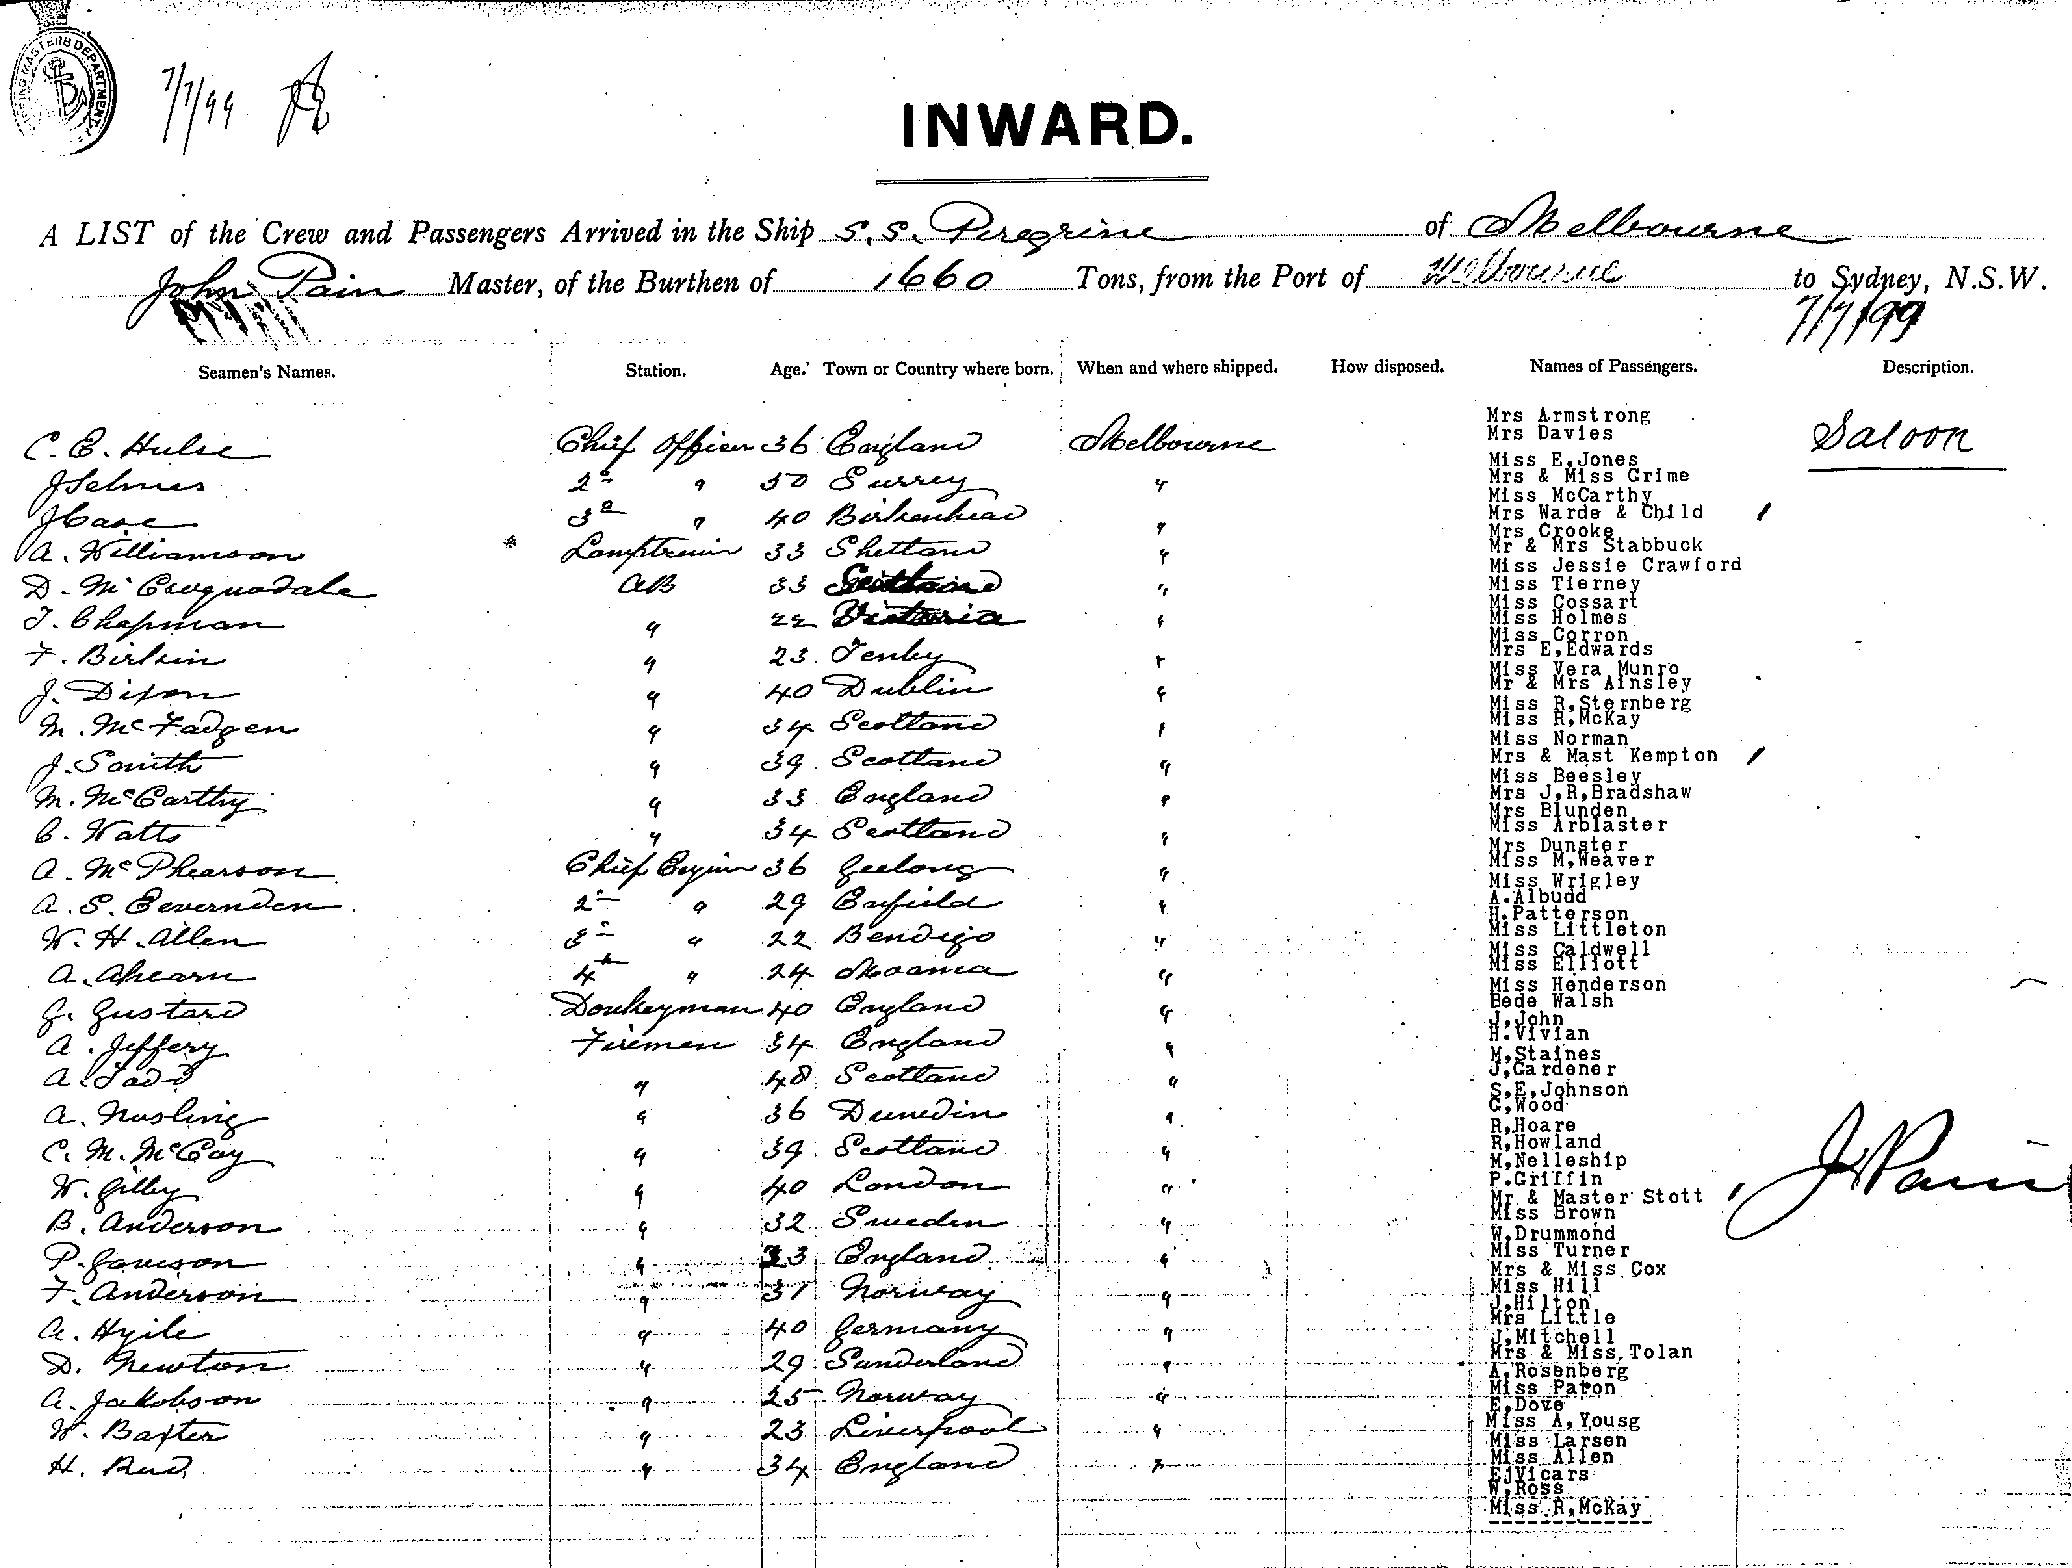 MASTERS DEPARTMENT
7/7/99
INWARD.
A LIST of the Crew and Passengers Arrived in the Ship S.S. Peregrine of Melbourne
John Pain Master, of the Burthen of 1660 Tons, from the Port of Melbourne to Sydney, N.S.W.
7/7/99
Seamen's Names. Station. Age. Town or Country where born. When and where shipped. How disposed. Names of Passengers. Description.
C. E. Hulse Chief Officer 36 England Melbourne
J Selmes 2nd " 50 Surrey "
J Case 3rd " 40 Birkenhead "
A. Williamson Lamptrimr 33 Shetland "
D. McCorquodale AB 33 Scotland "
T. Chapman " 22 Victoria "
F. Birkin " 23 Tenby "
J. Dixon " 40 Dublin "
M. McFadgen " 34 Scotland "
J. Smith " 39 Scotland "
M. McCarthy " 33 England "
C. Watts " 34 Scotland "
A. McPhearson Chief Engin 36 Geelong "
A. S. Eevernden 2nd " 29 Enfield "
W. H. Allen 3rd " 22 Bendigo "
A. Ahearn 4th " 24 Moama "
G. Gustard Donkeyman 40 England "
A. Jeffery Firemen 34 England "
A. Tadd " 48 Scotland "
A. Nosling " 36 Dunedin "
C. M. McCay " 39 Scotland "
W. Gilley " 40 London "
B. Anderson " 32 Sweden "
P. Gavison " 33 England "
F. Anderson " 31 Norway "
A. Hyile " 40 Germany "
D. Newton " 29 Sunderland "
A. Jakobson " 25 Norway "
W. Baxter " 23 Liverpool "
H. Rud " 34 England "
Mrs Armstrong
Mrs Davies
Saloon
Miss E,Jones
Mrs & Miss Grime
Miss McCarthy
Mrs Warde & Child
Mrs Crooke
Mr & Mrs Stabbuck
Miss Jessie Crawford
Miss Tierney
Miss Cossart
Miss Holmes
Miss Corron
Mrs E,Edwards
Miss Vera Munro
Mr & Mrs Ainsley
Miss R,Sternberg
Miss R,McKay
Miss Norman
Mrs & Mast Kempton
Miss Beesley
Mrs J,R,Bradshaw
Mrs Blunden
Miss Arblaster
Mrs Dunster
Miss M,Weaver
Miss Wrigley
A.Albudd
H.Patterson
Miss Littleton
Miss Caldwell
Miss Elliott
Miss Henderson
Bede Walsh
J,John
H.Vivian
M,Staines
J,Gardener
S,E,Johnson
G,Wood
R,Hoare
R,Howland
M,Nelleship
P.Griffin
Mr & Master Stott
Miss Brown
W,Drummond
Miss Turner
Mrs & Miss Cox
Miss Hill
J,Hilton
Mrs Little
J,Mitchell
Mrs & Miss Tolan
A,Rosenberg
Miss Paton
E,Dove
Miss A,Yousg
Miss Larsen
Miss Allen
E,Vicars
W,Ross
Miss R,McKay
J Pain